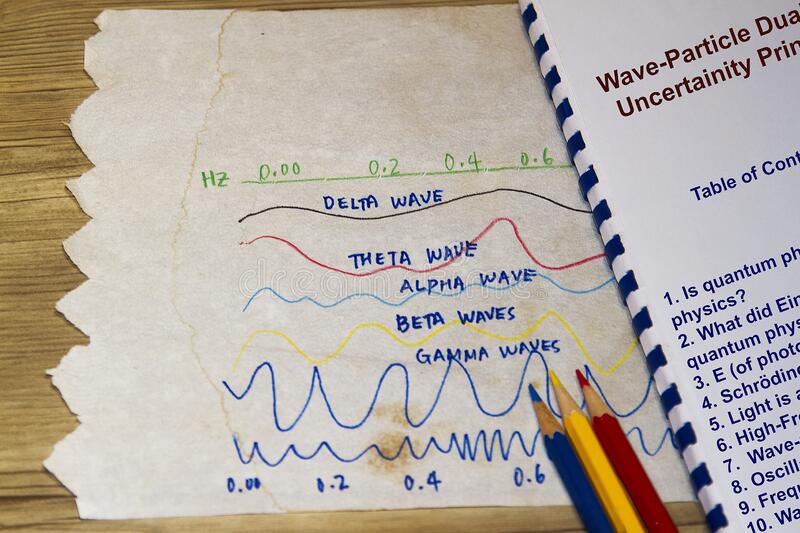 HZ 0.00 0.2 0.4 0.6
DELTA WAVE
THETA WAVE
ALPHA WAVE
BETA WAVES
GAMMA WAVES
0.00 0.2 0.4 0.6
Wave-Particle Dua
Uncertainity Prin
Table of Cont
1. Is quantum ph
physics?
2. What did Ein
quantum phys
3. E (of photo
4. Schröding
5. Light is a
6. High-Fre
7. Wave-
8. Oscilla
9. Frequ
10. Wa
dreamstime